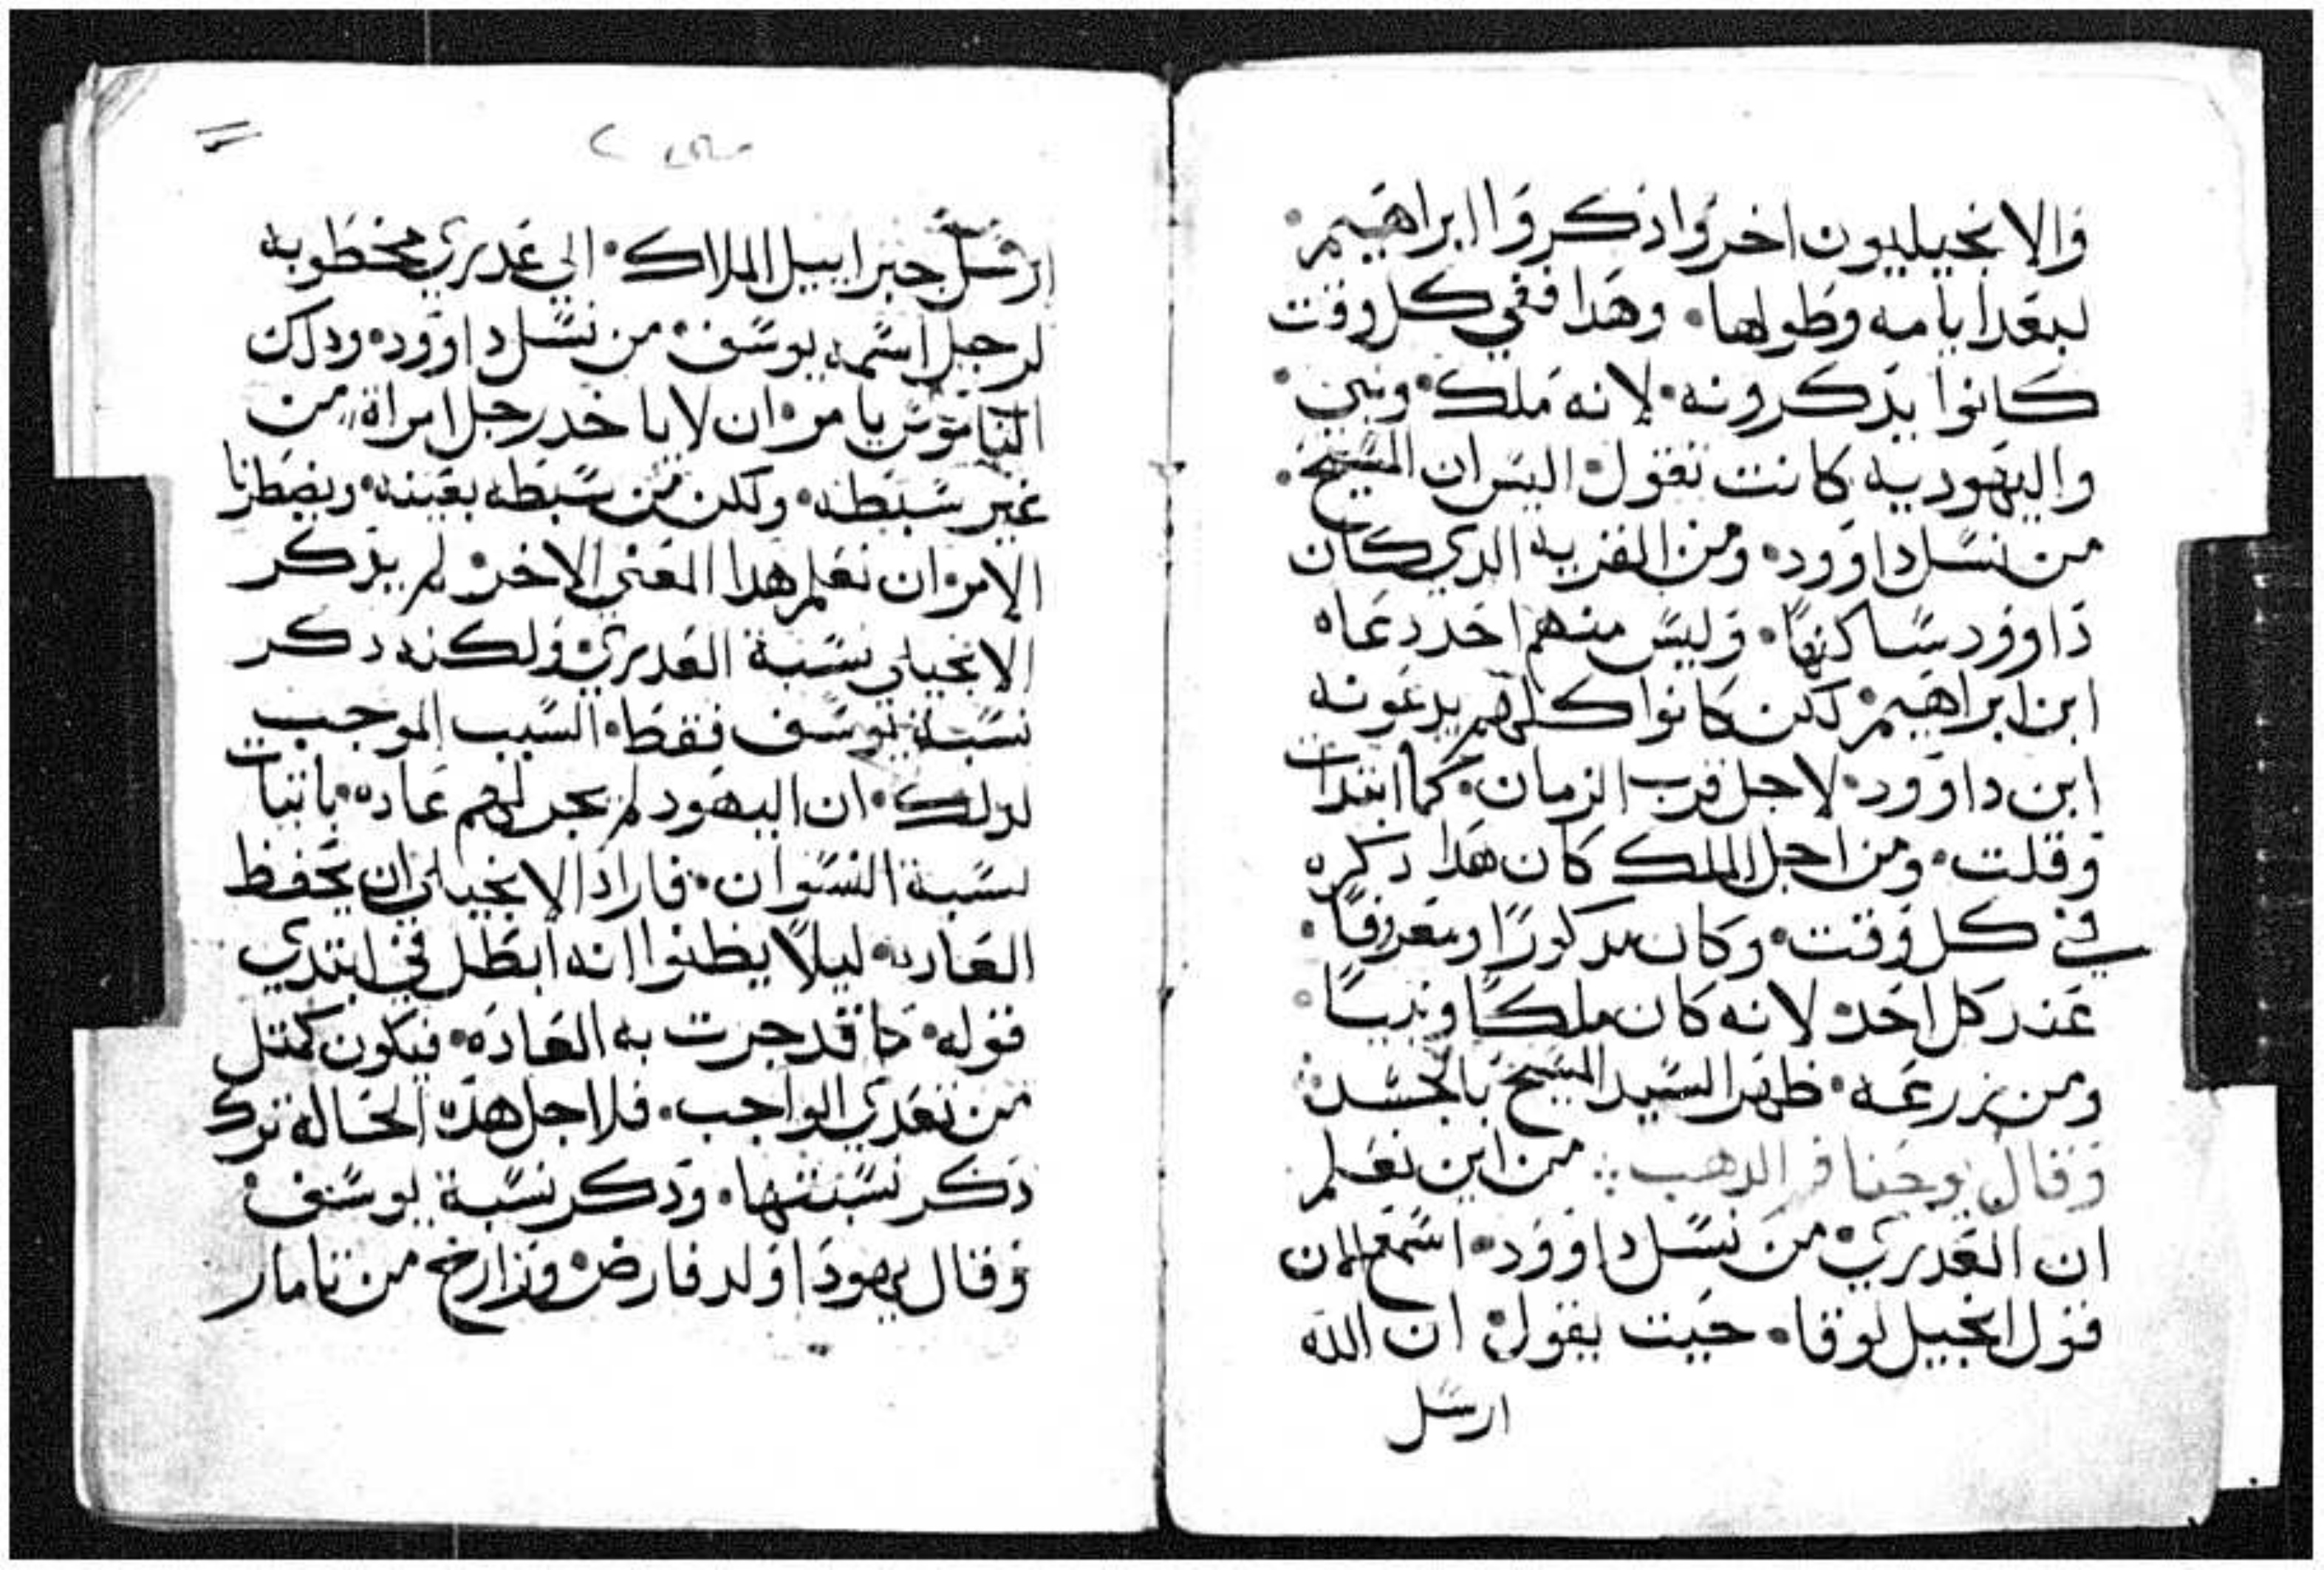 والانجيليون اخروا ذكروا ابراهيم•
لبعد ايامه وطولها• وهدا ففي كل وقت
كانوا يدكرونه• لانه ملك• ونبي•
واليهوديه كانت تقول• اليس ان المسيح•
من نسل داوود• ومن القريه الدي كان
داوود ساكنها• وليس منهم احد دعاه
ابن ابراهيم• لكن كانوا كلهم يدعونه
ابن داوود• لاجل قرب الزمان• كما ابتدات
وقلت• ومن اجل الملك كان هدا دكره
في كل وقت• وكان مدكورًا ومعروفًا•
عند كل احد• لانه كان ملكًا ونبيًا•
ومن زرعه• ظهر السيد المسيح بالجسد•
وقال يوحنا فم الدهب ⁘ من اين نعلم
ان العدري• من نسل داوود• اسمع الان
قول انجيل لوقا• حيت يقول• ان الله
ارسل
متى ٢
ارسل جبراييل الملاك• الي عدري مخطوبه
لرجل اسمه يوسف• من نسل داوود• ودلك
الناموس يامر• ان لا ياخد رجل امراة من
غير سبطه• ولكن من سبطه بعينه• ويضطرنا
الامر• ان نعلم هدا المعني الاخر• لم يدكر
الانجيلي نسبة العدري• ولكنه دكر
نسبة يوسف فقط• السبب الموجب
لدلك• ان اليهود لم تجر لهم عاده• باتبات
نسبة النسوان• فاراد الانجيلي ان يحفظ
العاده• ليلًا يظنوا انه ابطل في ابتدي
قوله• ما قد جرت به العاده• فيكون كمتل
من تعدي الواجب• فلاجل هده الحالة ترك
دكر نسبتها• ودكر نسبة يوسف•
وقال يهودا اولد فارض• وزارح من تامار